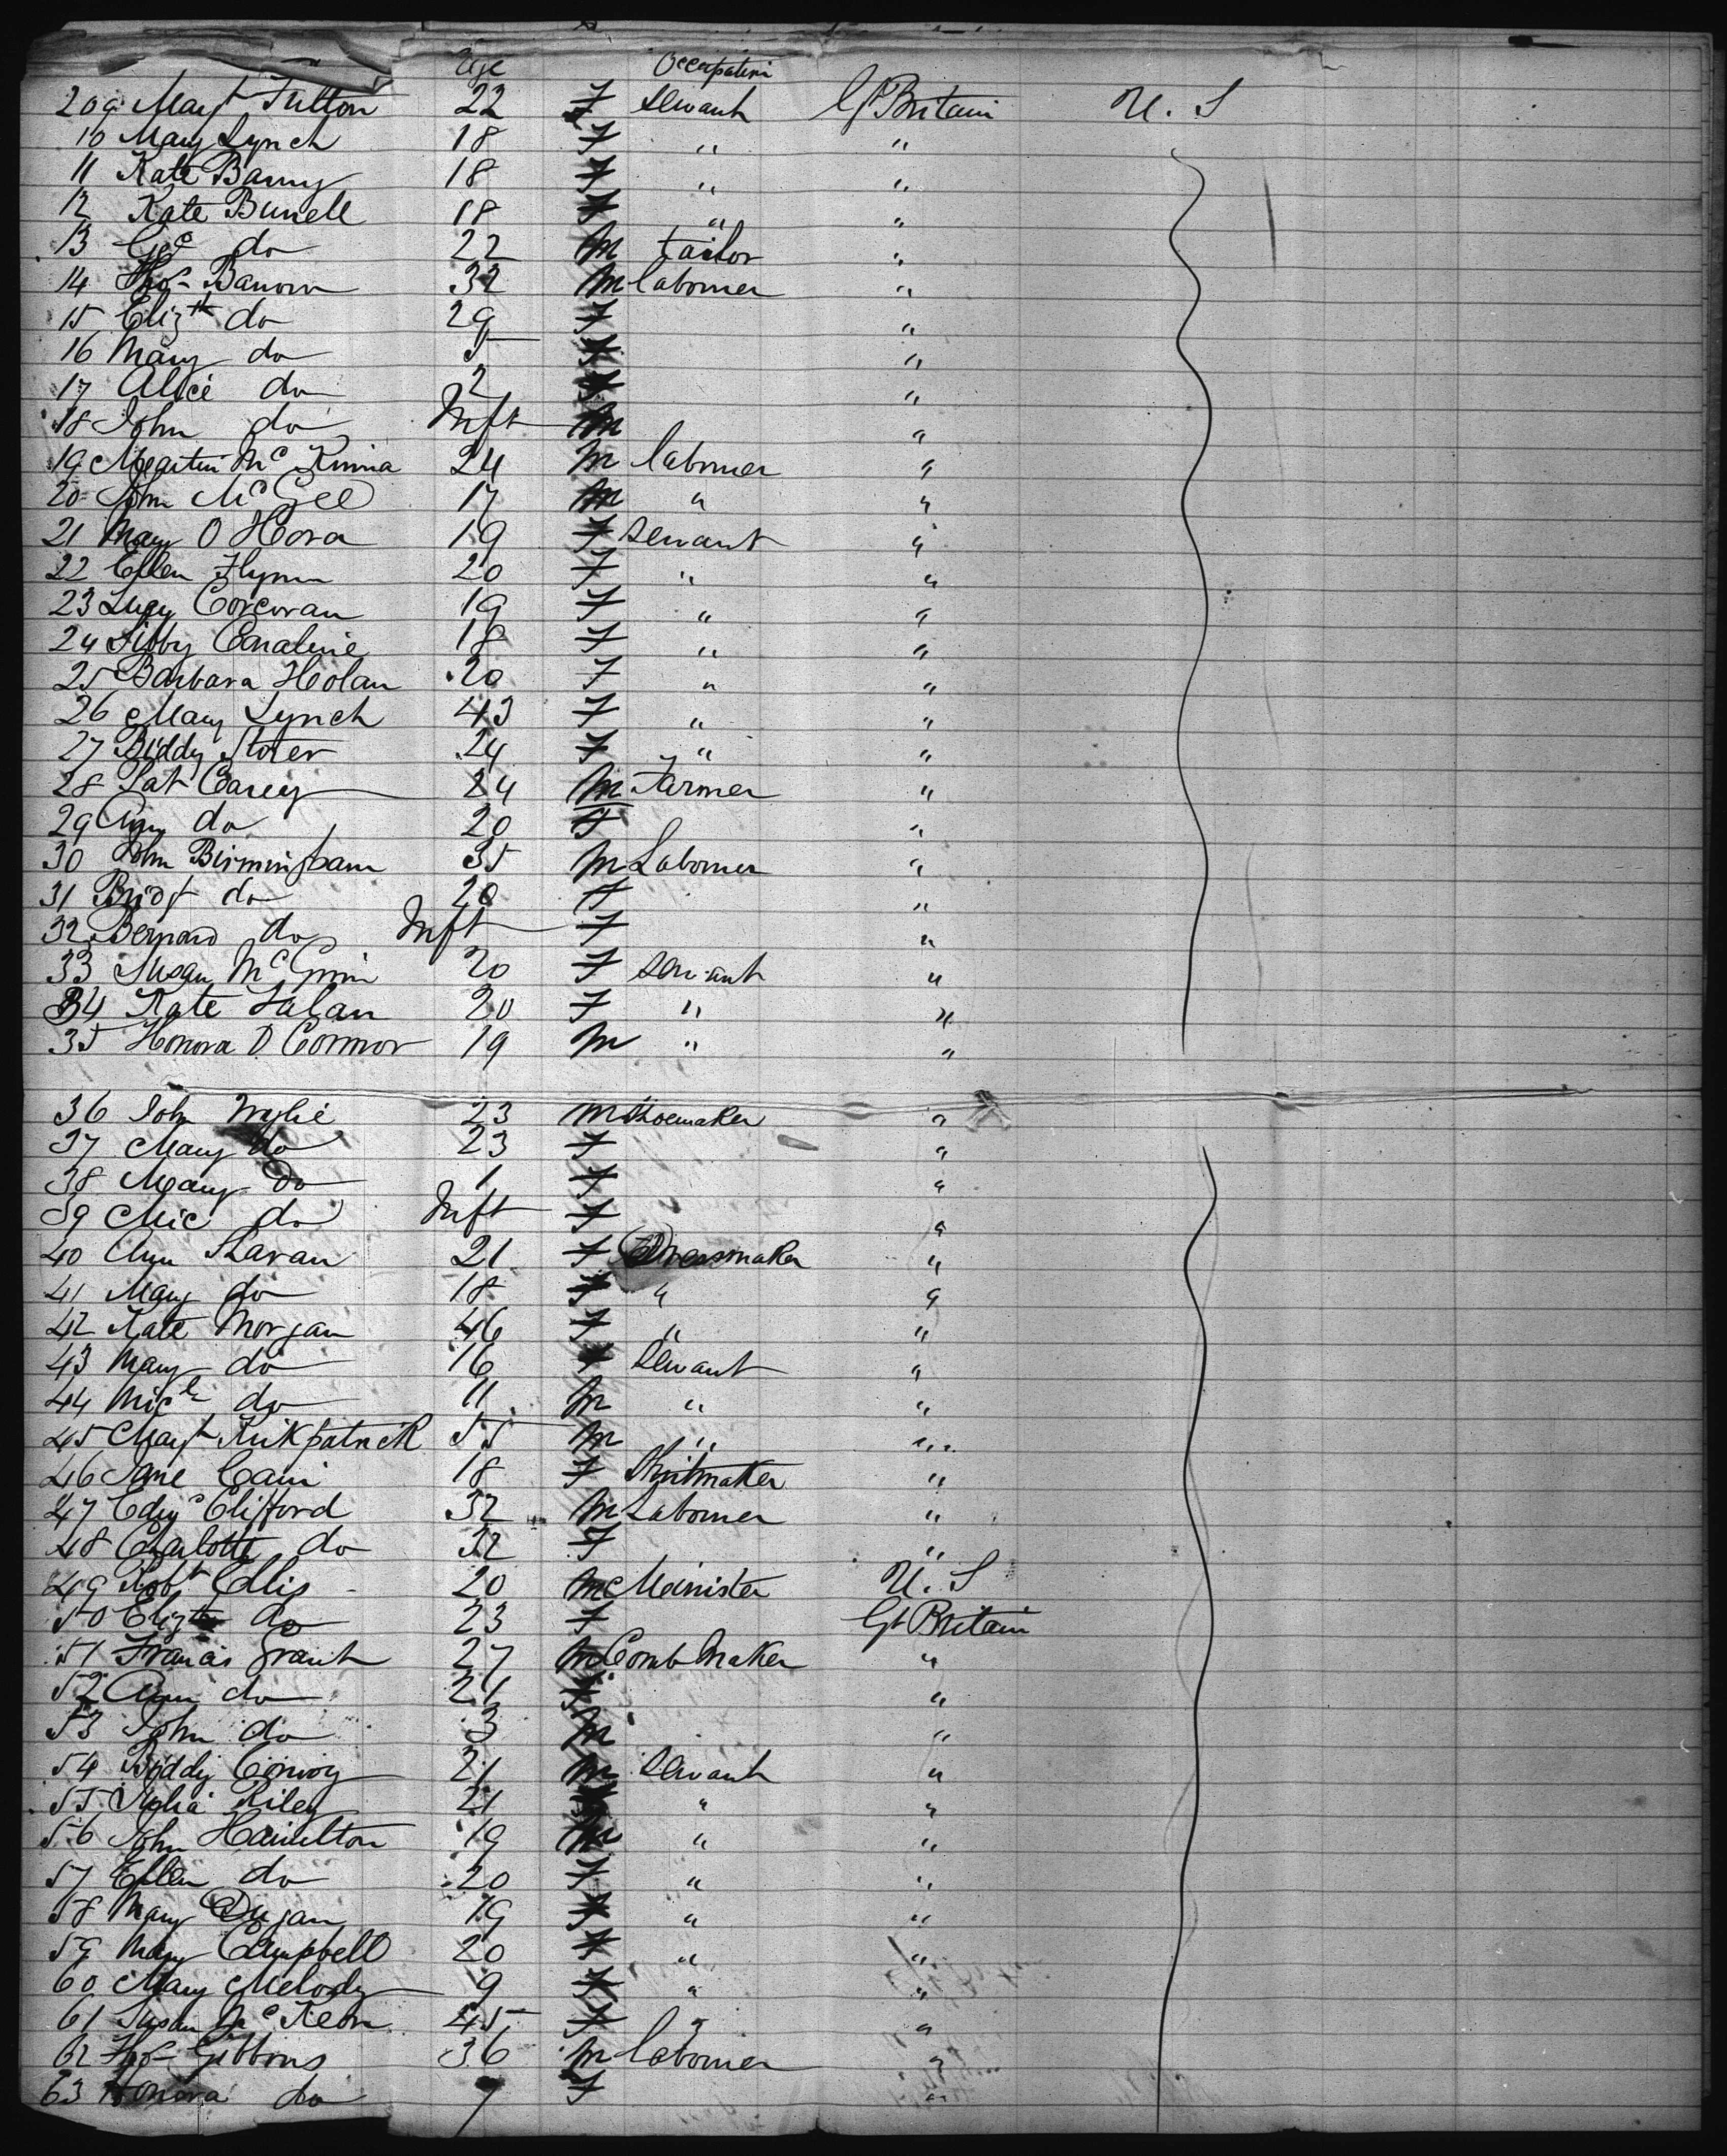 Age Occupation
209 Mar^t Fulton 22 F Servant Gt Britain U. S
10 Mary Lynch 18 F " "
11 Kate Barry 18 F " "
12 Kate Burrell 18 F " "
13 Geo do 22 M tailor "
14 Thos Barrow 32 M laborer "
15 Eliz^th do 29 F "
16 Mary do 5 F "
17 Alice do 2 F "
18 John do Inft M "
19 Martin Mc 24 M laborer "
20 John McGee 17 M " "
21 Mary O Hora 19 F Servant "
22 Ellen Flynn 20 F " "
23 Lucy Corcoran 19 F " "
24 Libby 18 F " "
25 Barbara Holan 20 F " "
26 Mary Lynch 43 F " "
27 Biddy Storer 24 F " "
28 Pat Carey 24 M Farmer "
29 Ann do 20 F "
30 John Birmingham 35 M Laborer "
31 Bridgt do 20 F "
32 Bernard do Inft F "
33 Susan McGinn 20 F Servant "
34 Kate Falan 20 F " "
35 Honora O Connor 19 M " "
36 John Wylie 23 M Shoemaker "
37 Mary do 23 F "
38 Mary do 1 F "
39 Mic do Inft F "
40 Ann Slavan 21 F Dressmaker "
41 Mary do 18 F " "
42 Kate Morgan 46 F " "
43 Mary do 16 F Servant "
44 Mic^l do 11 M " "
45 Mar^t Kirkpatrick 55 M " "
46 Jane Cain 18 F Shirtmaker "
47 Clifford 32 M Laborer "
48 Charlotte do 32 F "
49 Rob^t Ellis 20 M Minister U. S
50 Eliz^th do 23 F Gt Britain
51 Francis Grant 27 M Comb Maker "
52 Ann do 21 F "
53 John do 3 M "
54 Biddy Conroy 21 M Servant "
55 Julia Riley 21 F " "
56 John Hamilton 19 M " "
57 Ellen do 20 F " "
58 Mary Dugan 19 F " "
59 Mary Campbell 20 F " "
60 Mary Melody 9 F " "
61 Susan McKeon 45 F " "
62 Thos Gibbons 36 M laborer "
63 Honora do 7 F "